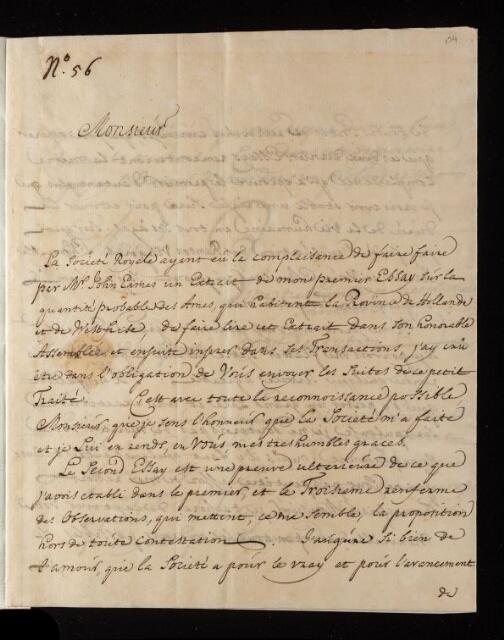 104
No. 56
Monsieur
La Societé Royale ayent eu la complaisance de faire faire
par Mr. John Eames un Extrait de mon premier Essay sur la
quantité probable des Ames, qui habitent la Province de Hollande
et de Westfrise, de faire lire cet Extrait dans son honorable
Assemblée et ensuite inserer dans ses Transactions, j'ay crû
être dans l'obligation de Vous envoyer les Suites de ce petit
Traité. C'est avec toute la reconnoissance possible
Monsieur, que je sens l'honneur que la Societé m'a faite
et je Lui en rends, en Vous mes tres humbles graces.
Le Second Essay est une preuve ulterieure de ce que
j'avois etabli dans le premier, et le Troisieme renferme
des Observations, qui mettent, ce me semble, la proposition
hors de toute Contestation. J'augure si bien de
l'amour, que la Societé a pour le vray et pour l'avancement
de